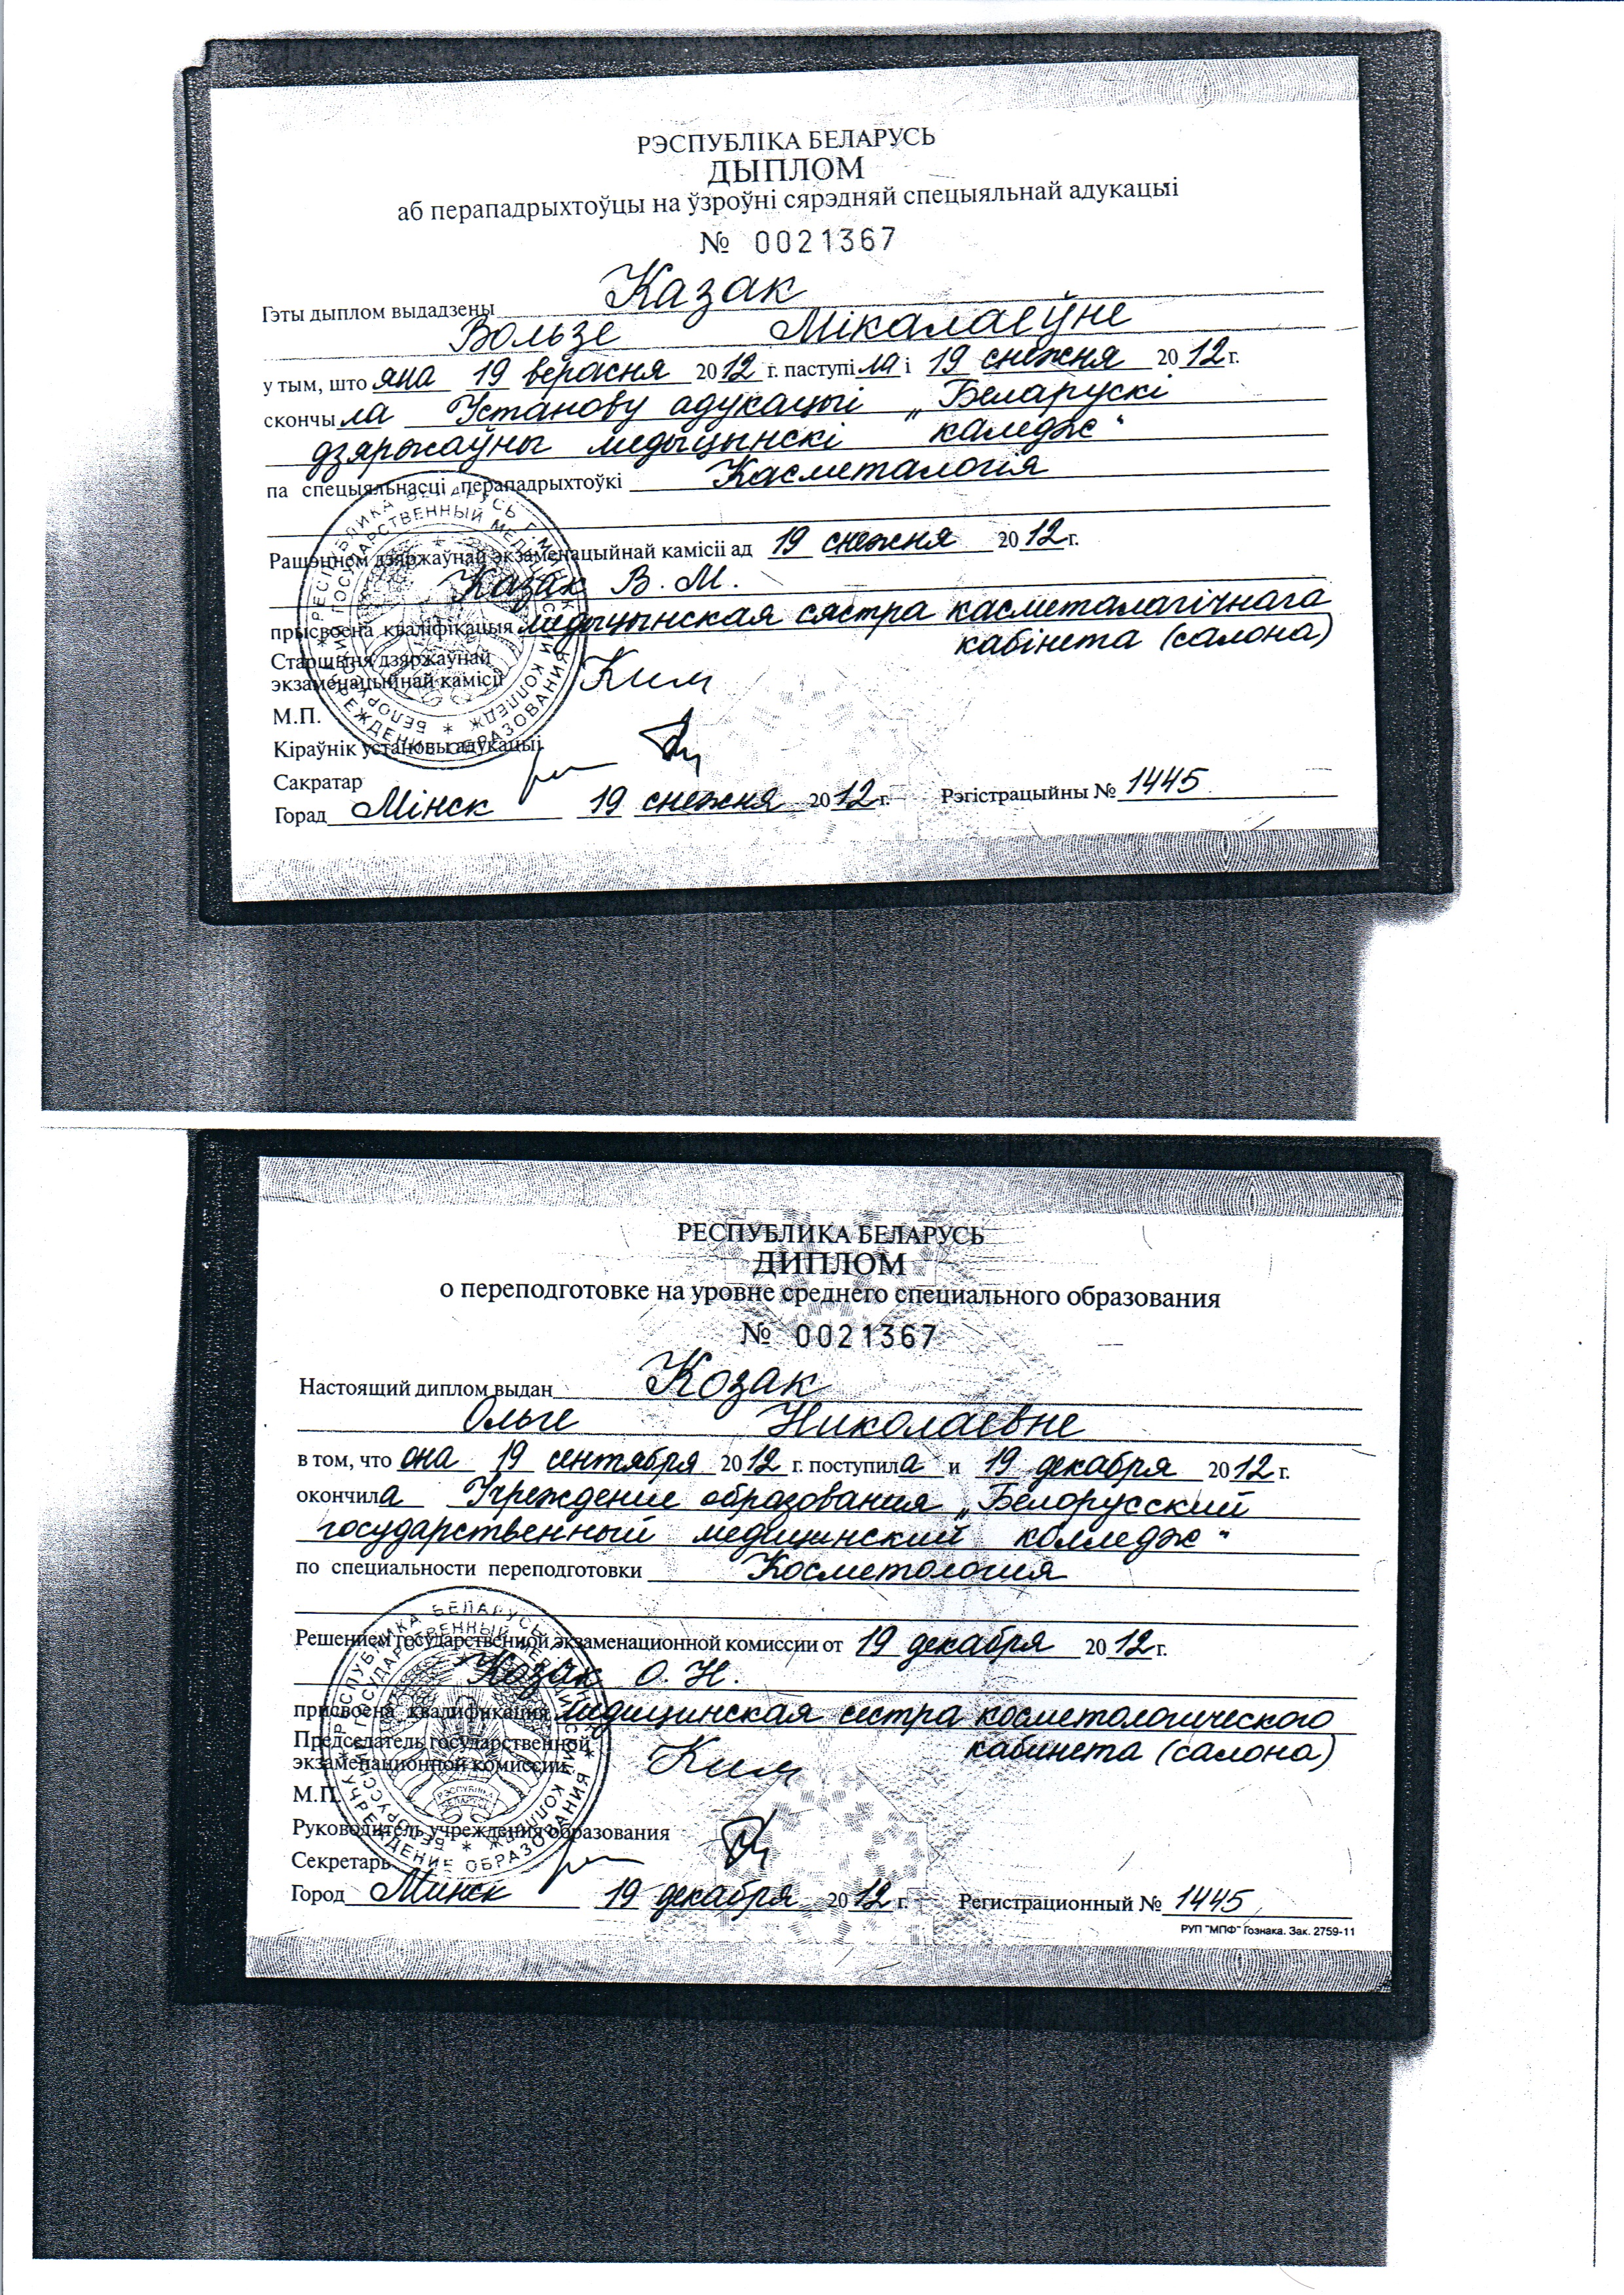 РЭСПУБЛІКА БЕЛАРУСЬ
ДЫПЛОМ
аб перападрыхтоўцы на ўзроўні сярэдняй спецыяльнай адукацыі
№ 0021367
Гэты дыплом выдадзены Казак
Вользе Мікалаеўне
у тым, што яна 19 верасня 2012 г. паступіла і 19 снежня 2012 г.
скончыла Установу адукацыі „Беларускі
дзяржаўны медыцынскі каледж“
па спецыяльнасці перападрыхтоўкі Касметалогія
Рашэннем дзяржаўнай экзаменацыйнай камісіі ад 19 снежня 2012 г.
Казак В. М.
прысвоена кваліфікацыя медыцынская сястра касметалагічнага
кабінета (салона)
Старшыня дзяржаўнай
экзаменацыйнай камісіі Ким
М.П.
Кіраўнік установы адукацыі
Сакратар
Горад Мінск 19 снежня 2012 г. Рэгістрацыйны № 1445
РЕСПУБЛИКА БЕЛАРУСЬ
ДИПЛОМ
о переподготовке на уровне среднего специального образования
№ 0021367
Настоящий диплом выдан Козак
Ольге Николаевне
в том, что она 19 сентября 2012 г. поступила и 19 декабря 2012 г.
окончила Учреждение образования „Белорусский
государственный медицинский колледж“
по специальности переподготовки Косметология
Решением государственной экзаменационной комиссии от 19 декабря 2012 г.
Козак О. Н.
присвоена квалификация медицинская сестра косметологического
кабинета (салона)
Председатель государственной
экзаменационной комиссии Ким
М.П.
Руководитель учреждения образования
Секретарь
Город Минск 19 декабря 2012 г. Регистрационный № 1445
РУП "МПФ" Гознака. Зак. 2759-11